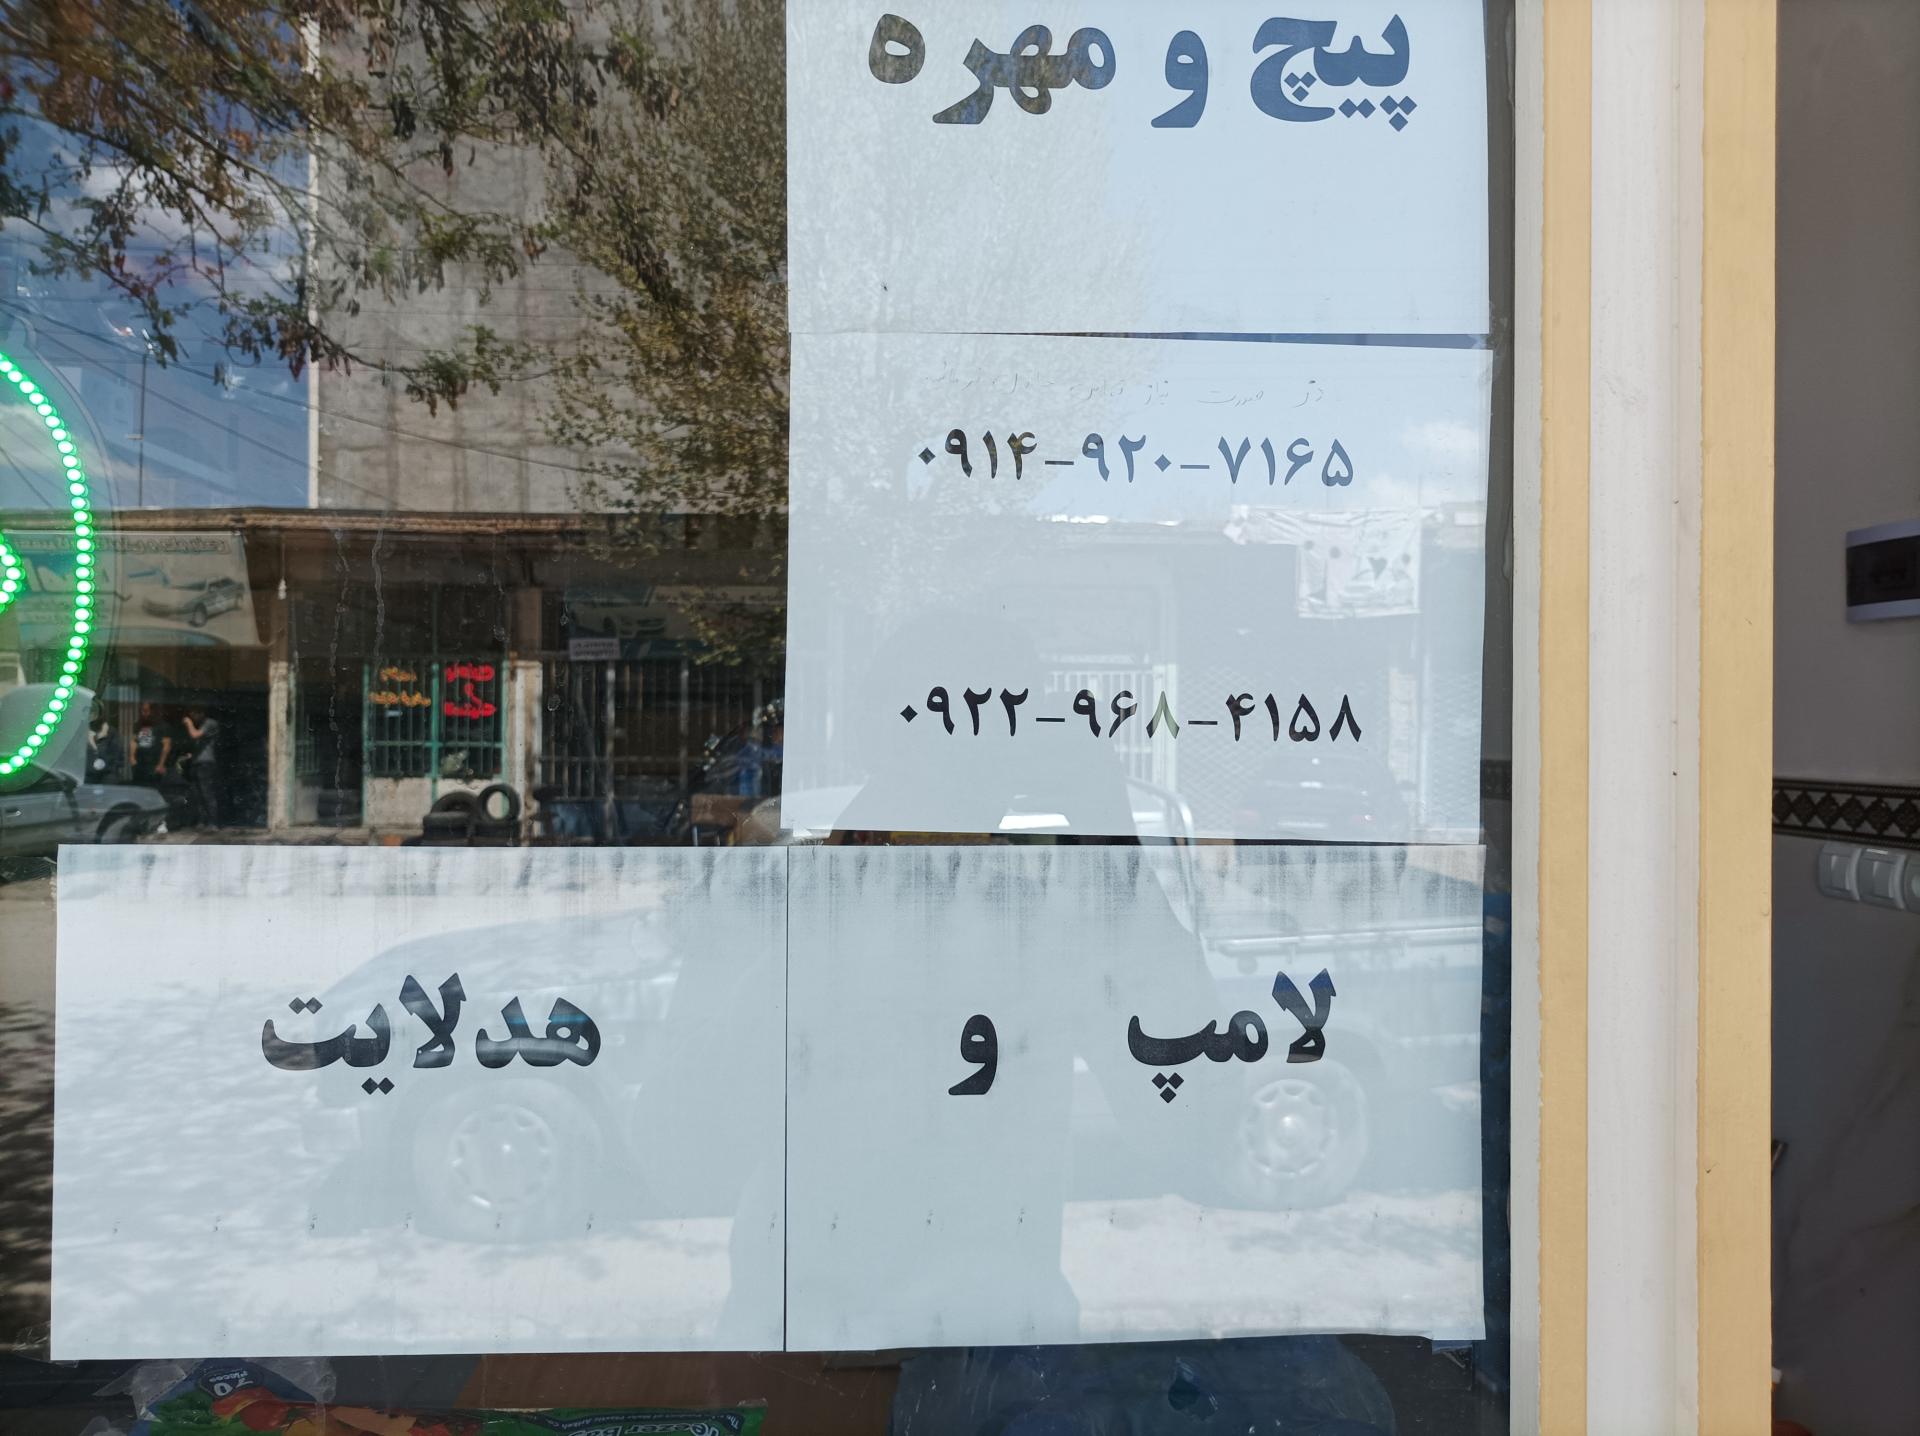 پیچ و مهره
در صورت نیاز تماس حاصل فرمائید
۰۹۱۴-۹۲۰-۷۱۶۵
۰۹۲۲-۹۶۸-۴۱۵۸
لامپ و هدلایت
70
Pieces
Freezer Bag